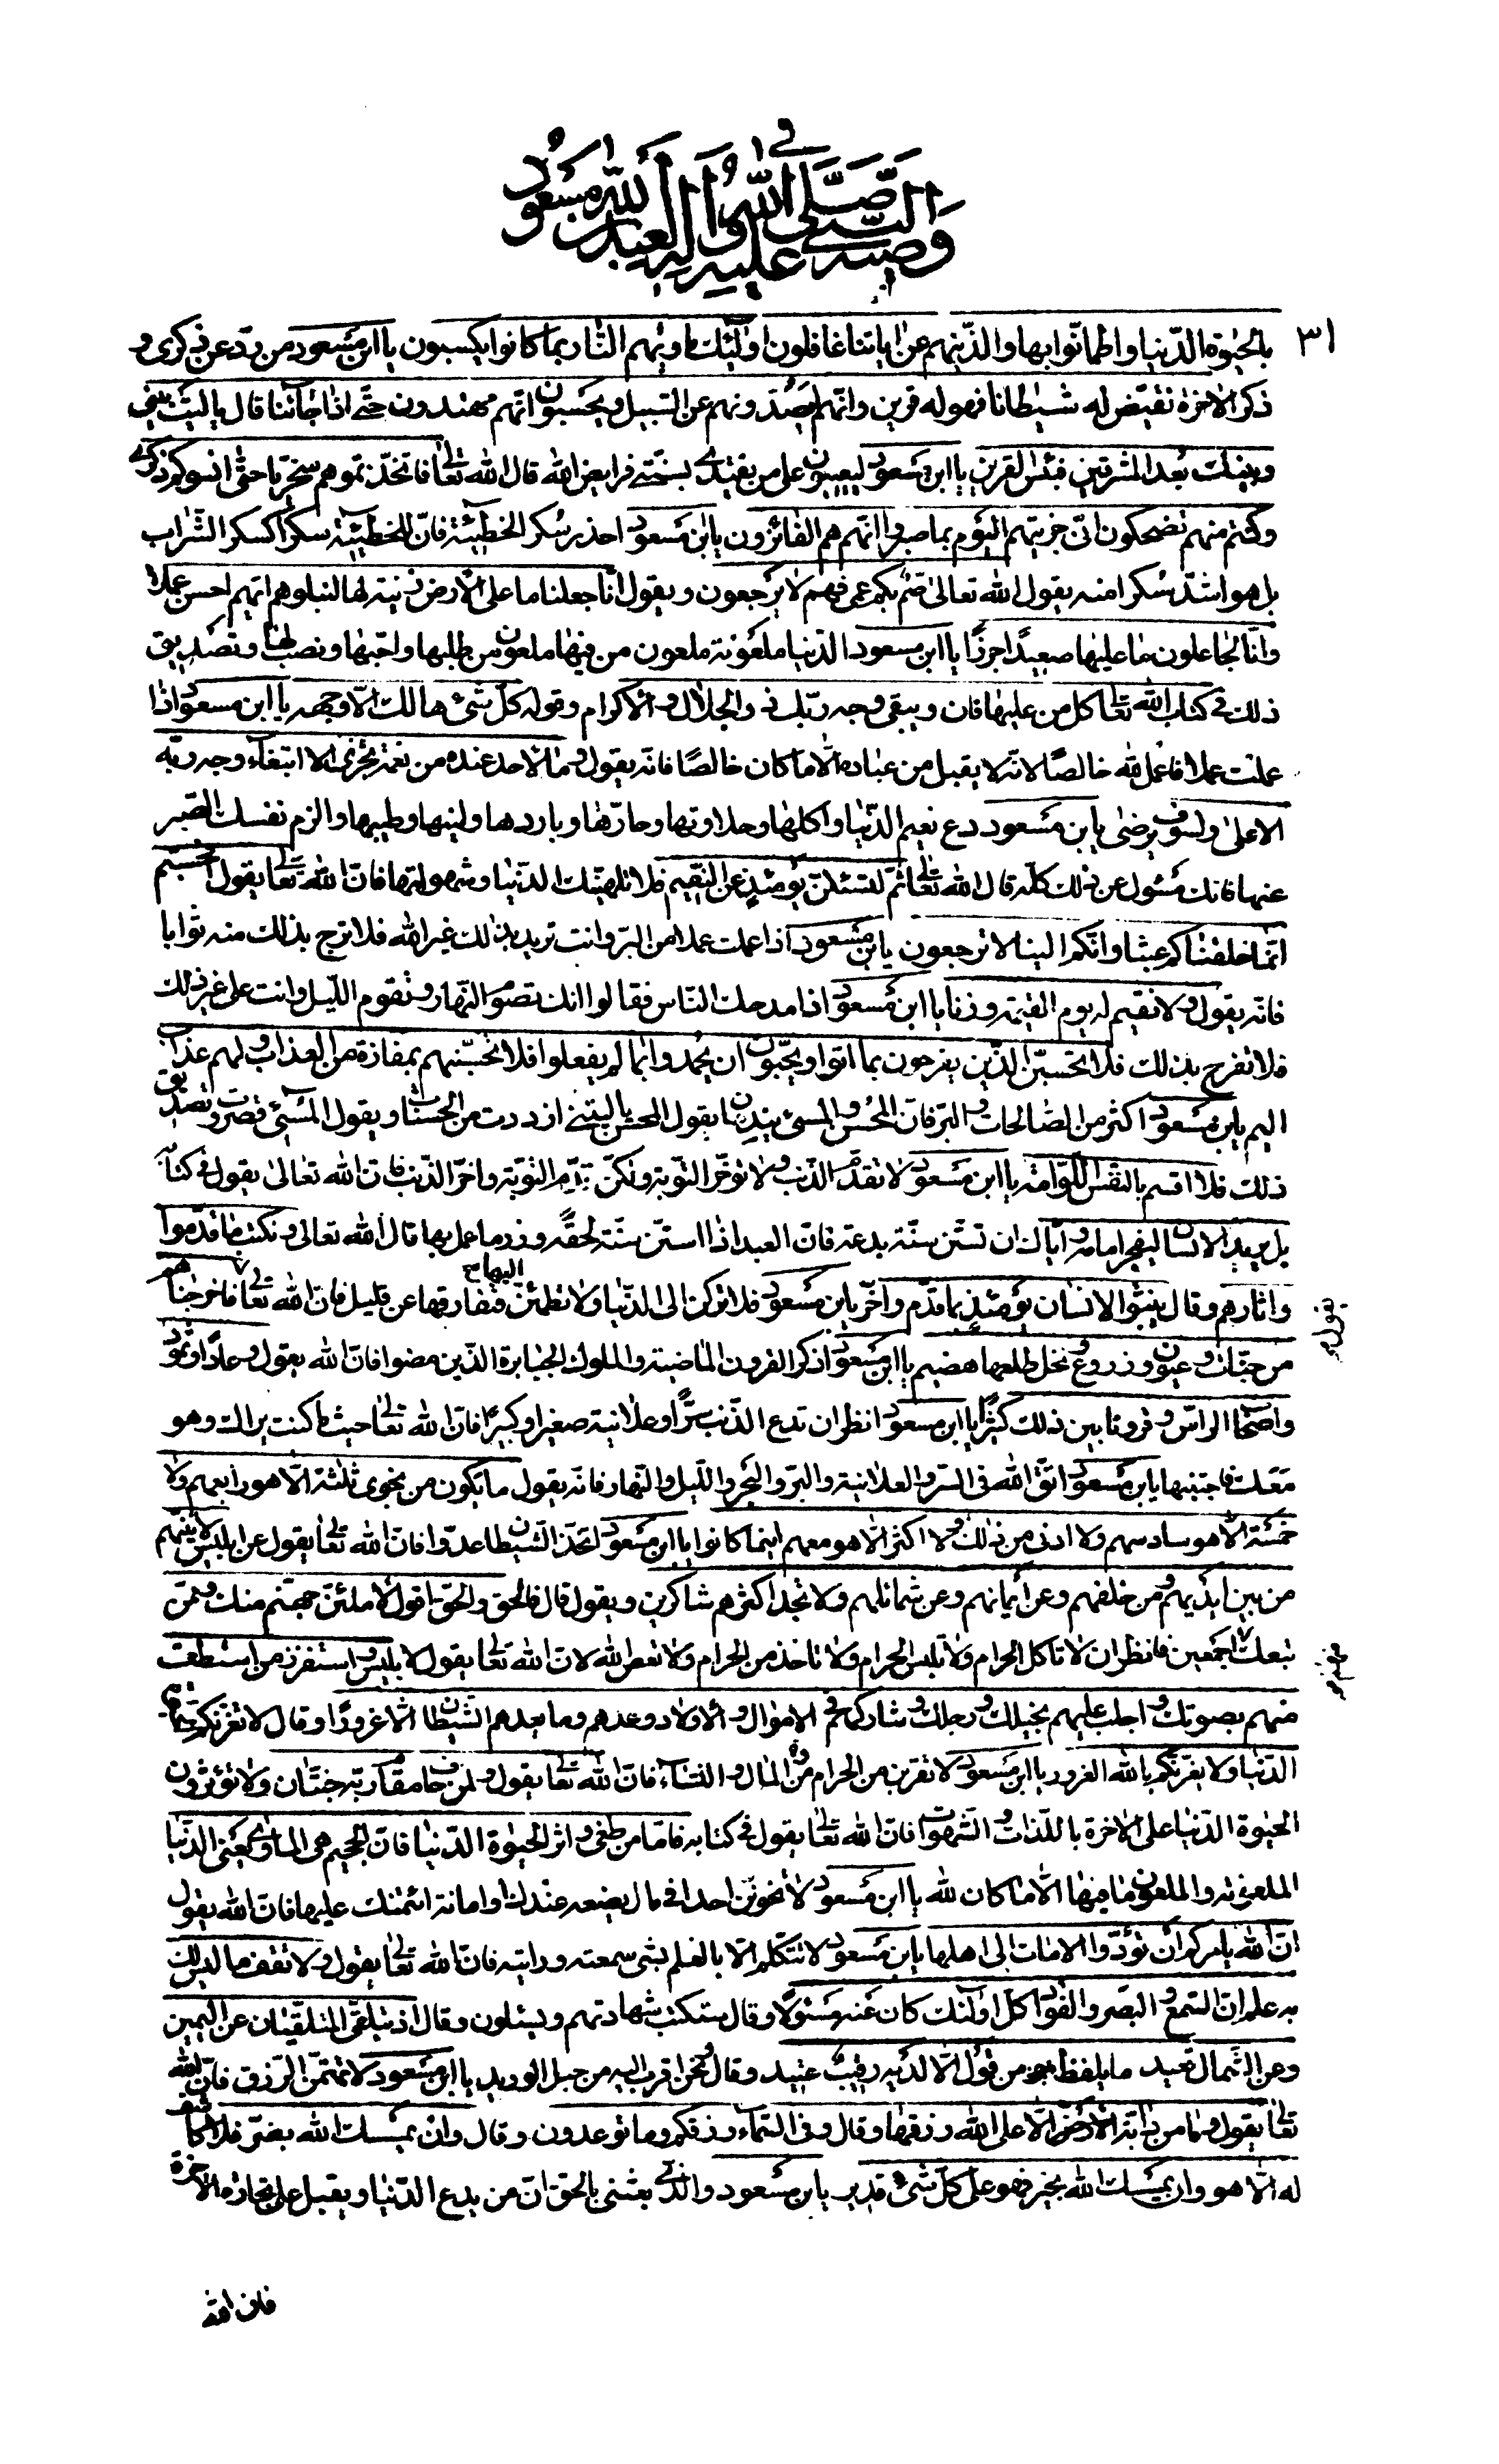 في وصية النبي صلى الله عليه وآله لعبد الله بن مسعود
٣١
بالحيوة الدنيا واطمانوا بها والذينهم عن اياتنا غافلون اولئك ماويهم النار بما كانوا يكسبون يا ابن مسعود من ردّ عن ذكرى و
ذكر الاخرة نقيض له شيطانا فهو له قرين وانهم ليصدونهم عن السبيل ويحسبون انهم مهتدون حتى اذا جائنا قال يا ليت بينى
وبينك بعد المشرقين فبئس القرين يا ابن مسعود ليعيبون على من يقتدى بسنتى فرايض الله قال الله تعالى فاتخذتموهم سخريا حتى انسوكم ذكرى
وكنتم منهم تضحكون انى جزيتهم اليوم بما صبروا انهم هم الفائزون يا بن مسعود احذر سكر الخطيئة فانّ للخطيئة سكرا كسكر الشراب
بل هو اشدّ سكرا منه يقول الله تعالى صم بكم عمى فهم لا يرجعون ويقول انا جعلنا ما على الارض زينة لها لنبلوهم ايهم احسن عملا
وانا لجاعلون ما عليها صعيدا جرزا يا ابن مسعود الدنيا ملعونة ملعون من فيها ملعون من طلبها واحبها ونصب لها وتصديق
ذلك فى كتاب الله تعالى كل من عليها فان ويبقى وجه ربك ذو الجلال والاكرام وقوله كل شئ هالك الا وجهه يا ابن مسعود اذا
عملت عملا فاعمل لله خالصا لانه لا يقبل من عباده الا ما كان خالصا فانه يقول وما لاحد عنده من نعمة تجزى الا ابتغاء وجه ربه
الاعلى ولسوف يرضى يا بن مسعود دع نعيم الدنيا واكلها وحلاوتها وحارها وباردها ولينها وطيبها والزم نفسك الصبر
عنها فانك مسئول عن ذلك كله قال الله تعالى ثم لتسئلن يومئذ عن النعيم فلا تلهينك الدنيا وشهواتها فان الله تعالى يقول افحسبتم
انما خلقناكم عبثا وانكم الينا لا ترجعون يا بن مسعود اذا عملت عملا من البر وانت تريد بذلك غير الله فلا ترج بذلك منه ثوابا
فانه يقول ولا نقيم له يوم القيمة وزنا يا ابن مسعود اذا مدحك الناس فقالوا انك تصوم النهار وتقوم الليل وانت على غير ذلك
فلا تفرح بذلك فلا تحسبن الذين يفرحون بما اتوا ويحبون ان يحمدوا بما لم يفعلوا فلا تحسبنهم بمفازة من العذاب ولهم عذاب
اليم يا بن مسعود اكثر من الصالحات والبر فان المحسن والمسئ يندمان يقول المحسن يا ليتنى ازددت من الحسنات ويقول المسئ قصرت وتصديق
ذلك فلا اقسم بالنفس اللوامة يا ابن مسعود لا تقدم الذنب ولا توخر التوبة ولكن قدم التوبة واخر الذنب فان الله تعالى يقول فى كتابه
بل يريد الانسان ليفجر امامه واياك ان تسنن سنة بدعة فان العبد اذا استن سنة لحقه وزر ما عمل بها قال الله تعالى ونكتب ما قدموا
واثارهم وقال ينبؤ الانسان يومئذ بما قدم واخر يا بن مسعود فلا تركن الى الدنيا ولا تطمئن اليها فتفارقها عن قليل فان الله تعالى فاخرجناهم
من جنات وعيون وزروع ونخل طلعها هضيم يا ابن مسعود اذكر القرون الماضية والملوك الجبابرة الذين مضوا فان الله يقول وعادا وثمود
واصحاب الراس وقرونا بين ذلك كثيرا يا ابن مسعود انظر ان تدع الذنب سرا وعلانية صغيرا وكبيرا فان الله تعالى حيث ما كنت يراك وهو
معك فاجتنبها يا بن مسعود اتق الله فى السر والعلانية والبر والبحر والليل والنهار فانه يقول ما يكون من نجوى ثلثة الا هو رابعهم ولا
خمسة الا هو سادسهم ولا ادنى من ذلك ولا اكثر الا هو معهم اينما كانوا يا ابن مسعود اتخذ الشيطان عدوا فان الله تعالى يقول عن ابليس لاتينهم
من بين ايديهم ومن خلفهم وعن ايمانهم وعن شمائلهم ولا تجد اكثرهم شاكرين ويقول قال فالحق والحق اقول لاملئن جهنم منك وممن
تبعك اجمعين فانظر ان لا تاكل الحرام ولا تلبس الحرام ولا تاخذ من الحرام ولا تعص الله لان الله تعالى يقول لابليس واستفزز من استطعت
منهم بصوتك واجلب عليهم بخيلك ورجلك وشاركهم فى الاموال والاولاد وعدهم وما يعدهم الشيطان الا غرورا وقال لا تغرنكم الحيوة
الدنيا ولا يغرنكم بالله الغرور يا ابن مسعود لا تقربن من الحرام من المال والنساء فان الله تعالى يقول ولمن خاف مقام ربه جنتان ولا تؤثرون
الحيوة الدنيا على الاخرة باللذات والشهوات فان الله تعالى يقول فى كتابه فاما من طغى واثر الحيوة الدنيا فان الجحيم هى الماوى يعنى الدنيا
الملعونة والملعون ما فيها الا ما كان لله يا ابن مسعود لا تخونن احدا فى مال يضعه عندك او امانة ائتمنك عليها فان الله يقول
ان الله يامركم ان تؤدوا الامانات الى اهلها يا بن مسعود لا تتكلم الا بالعلم بشى سمعته ورايته فان الله تعالى يقول ولا تقف ما ليس لك
به علم ان السمع والبصر والفؤاد كل اولئك كان عنه مسئولا وقال ستكتب شهادتهم ويسئلون وقال اذ يتلقى المتلقيان عن اليمين
وعن الشمال قعيد ما يلفظ من قول الا لديه رقيب عتيد وقال ونحن اقرب اليه من حبل الوريد يا ابن مسعود لا تهتمن الرزق فان الله
تعالى يقول وما من دابة فى الارض الا على الله رزقها وقال وفى السماء رزقكم وما توعدون وقال وان يمسسك الله بضر فلا كاشف
له الا هو وان يمسسك الله بخير فهو على كل شئ قدير يا بن مسعود والذى بعثنى بالحق ان من يدع الدنيا ويقبل على تجارة الاخرة
فان الله